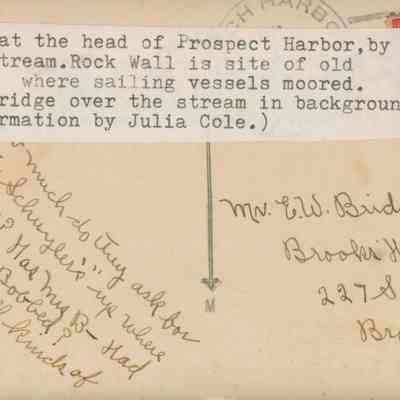 CH HARBO
at the head of Prospect Harbor,by
tream.Rock Wall is site of old
where sailing vessels moored.
ridge over the stream in backgroun
ormation by Julia Cole.)
much do they ask for
Schuyler's" up where
? Has Mrs B- Had
Bobbed?
kinds of
Mr. E.W. Brid
Brooks H
227 S
Bro
M